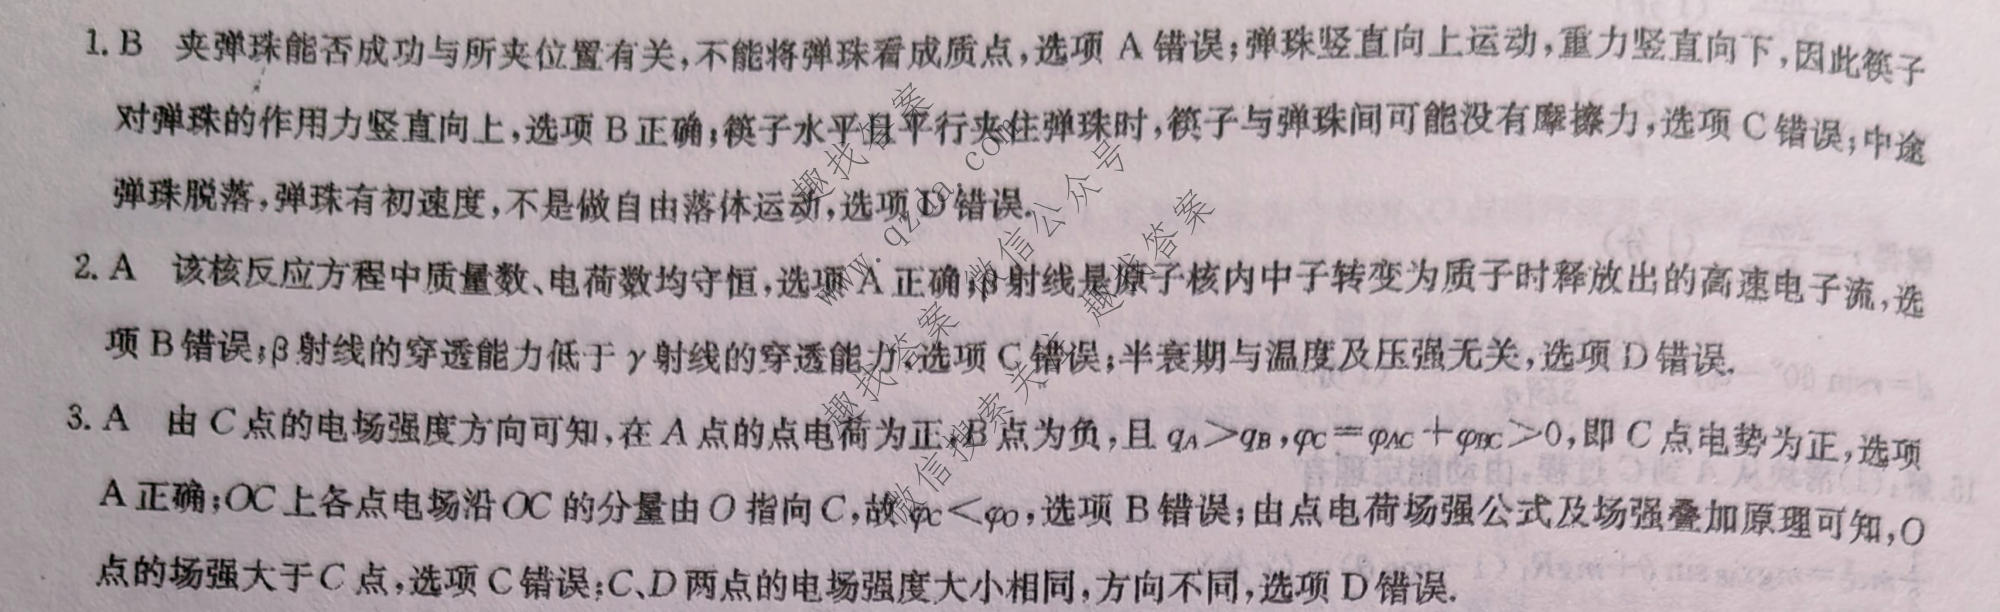 1. B 夹弹珠能否成功与所夹位置有关,不能将弹珠看成质点,选项 A 错误;弹珠竖直向上运动,重力竖直向下,因此筷子
对弹珠的作用力竖直向上,选项 B 正确;筷子水平且平行夹住弹珠时,筷子与弹珠间可能没有摩擦力,选项 C 错误;中途
弹珠脱落,弹珠有初速度,不是做自由落体运动,选项 D 错误.
2. A 该核反应方程中质量数、电荷数均守恒,选项 A 正确;β射线是原子核内中子转变为质子时释放出的高速电子流,选
项 B 错误;β射线的穿透能力低于γ射线的穿透能力,选项 C 错误;半衰期与温度及压强无关,选项 D 错误.
3. A 由 C 点的电场强度方向可知,在 A 点的点电荷为正,B 点为负,且 qA>qB,φC=φAC+φBC>0,即 C 点电势为正,选项
A 正确;OC 上各点电场沿 OC 的分量由 O 指向 C,故 φC<φO,选项 B 错误;由点电荷场强公式及场强叠加原理可知,O
点的场强大于 C 点,选项 C 错误;C、D 两点的电场强度大小相同,方向不同,选项 D 错误.
趣找答案
www.qzda.com
微信公众号
趣找答案
微信搜索关注 趣找答案